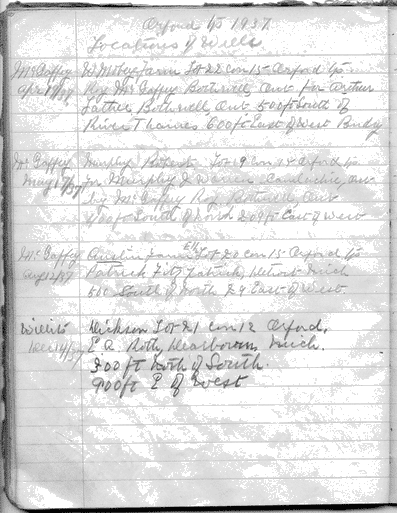 Orford Tp 1937
Locations of Wells
McGaffey W Mobey Farm Lot 22 con 15 Orford Tp
Apr 19/37 Roy McGaffey Bothwell, Ont for Arthur
Father Bothwell, Ont 500 ft South of
River Thames 600 ft East of West Bndy
McGaffey Murphy Robert Lot 19 con 14 Orford Tp
May /37 for Murphy & Warren Ont
by McGaffey Roy, Bothwell, Ont
400 ft South of North 209 ft East of West
McGaffey Austin Farm Lot 20 con 15 Orford Tp
Aug 12/37 Patrick Fitzpatrick, Detroit Mich
500 South of North 29 East of West
Willits Dickson Lot 21 con 12 Orford,
Dec /37 E. R. Roth, Dearborn, Mich.
300 ft North of South.
900 ft E of West